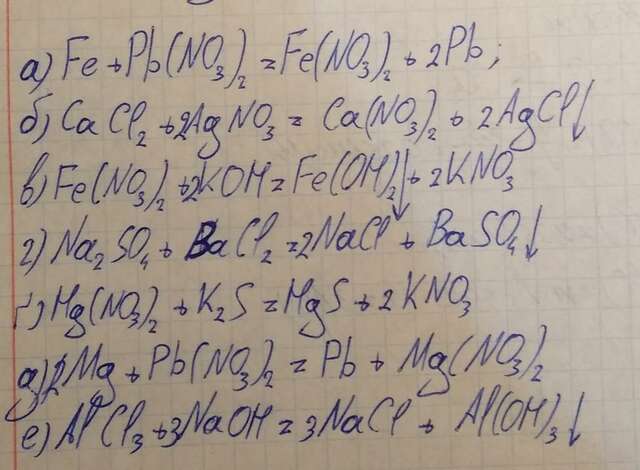 а) Fe + Pb(NO₃)₂ = Fe(NO₃)₂ + 2Pb;
б) CaCl₂ + 2AgNO₃ = Ca(NO₃)₂ + 2AgCl↓
в) Fe(NO₃)₂ + 2KOH = Fe(OH)₂↓ + 2KNO₃
г) Na₂SO₄ + BaCl₂ = 2NaCl + BaSO₄↓
ґ) Hg(NO₃)₂ + K₂S = HgS + 2KNO₃
д) 2Mg + Pb(NO₃)₂ = Pb + Mg(NO₃)₂
е) AlCl₃ + 3NaOH = 3NaCl + Al(OH)₃↓